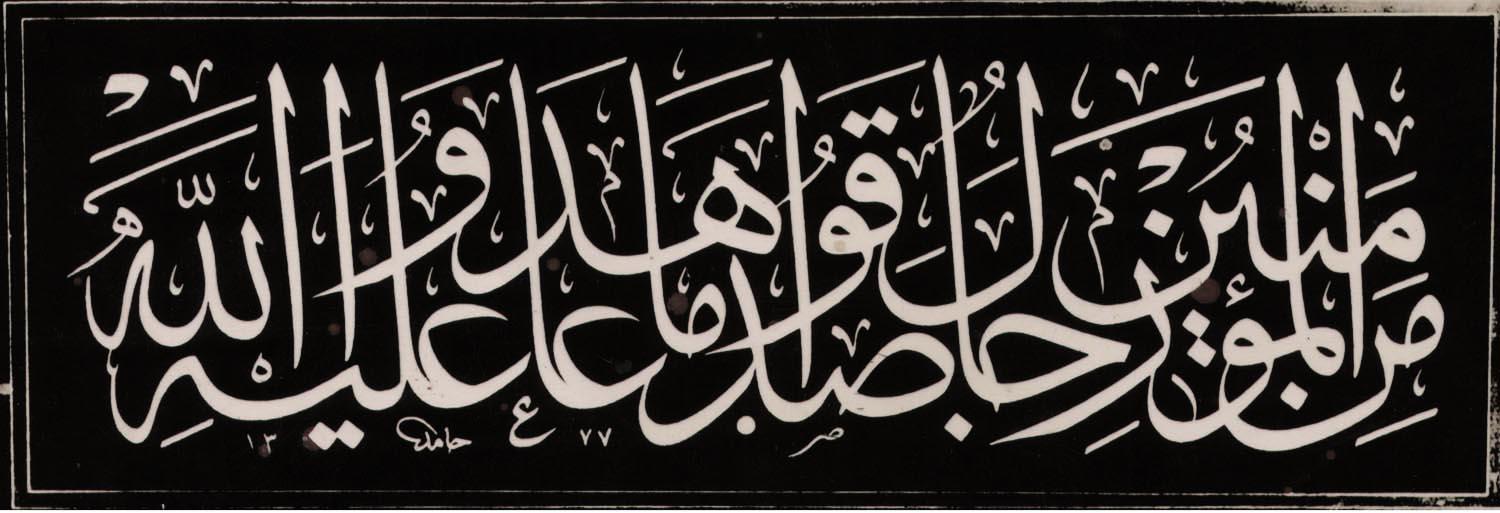 مِنَ الْمُؤْمِنِينَ رِجَالٌ صَدَقُوا مَا عَاهَدُوا اللَّهَ عَلَيْهِ
حامد ١٣٧٧